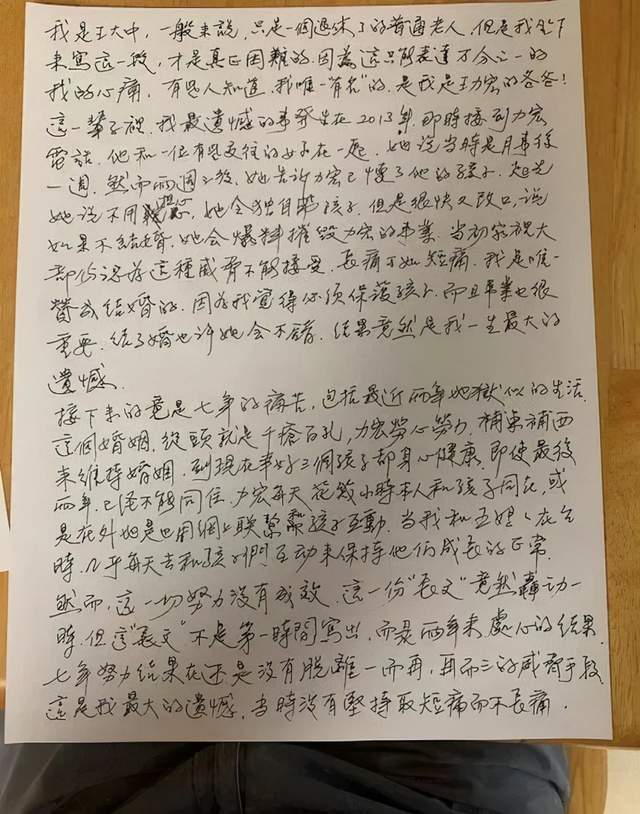 我是王大中，一般來說，只是一個退休了的普通老人，但是我坐下
來寫這一段，才是真正困難的。因為這只能表達万分之一的
我的心痛，有些人知道，我唯一"有名"的，是我是王力宏的爸爸！
這一輩子裡，我最遺憾的事發生在2013年，那時接到力宏
電話，他和一位有些交往的女子在一起，她說當時是月事後
一週，然而兩週之後，她告訴力宏已懷了他的孩子，起先
她說不用擔心，她会獨自养孩子，但是很快又改口，說
如果不結婚，她会爆料摧毀力宏的事業，當初家裡大
部份認為這種威脅不能接受，長痛不如短痛，我是唯一
贊成結婚的，因為我覺得必須保護孩子，而且事業也很
重要，結了婚也許她会不錯，結果竟然是我一生最大的
遺憾．
接下來的竟是七年的痛苦，包括最近兩年地獄似的生活，
這個婚姻，從頭就是千瘡百孔，力宏勞心勞力，補東補西
來維持婚姻，到現在幸好三個孩子都身心健康，即使最後
兩年，已經不能同住，力宏每天花幾小時本人和孩子同在，或
是在外地也用網上聯繫和孩子互動，當我和王媽媽在台
時，几乎每天去和孩子們互動來保持他们成長的正常．
然而，這一切努力沒有成效，這一份"長文"竟然轟动一
時，但這"長文"不是第一時間寫出，而是兩年來處心的結果，
七年努力結果在还是沒有脫離一而再，再而三的威脅手段
這是我最大的遺憾，当時沒有堅持取短痛而不長痛．